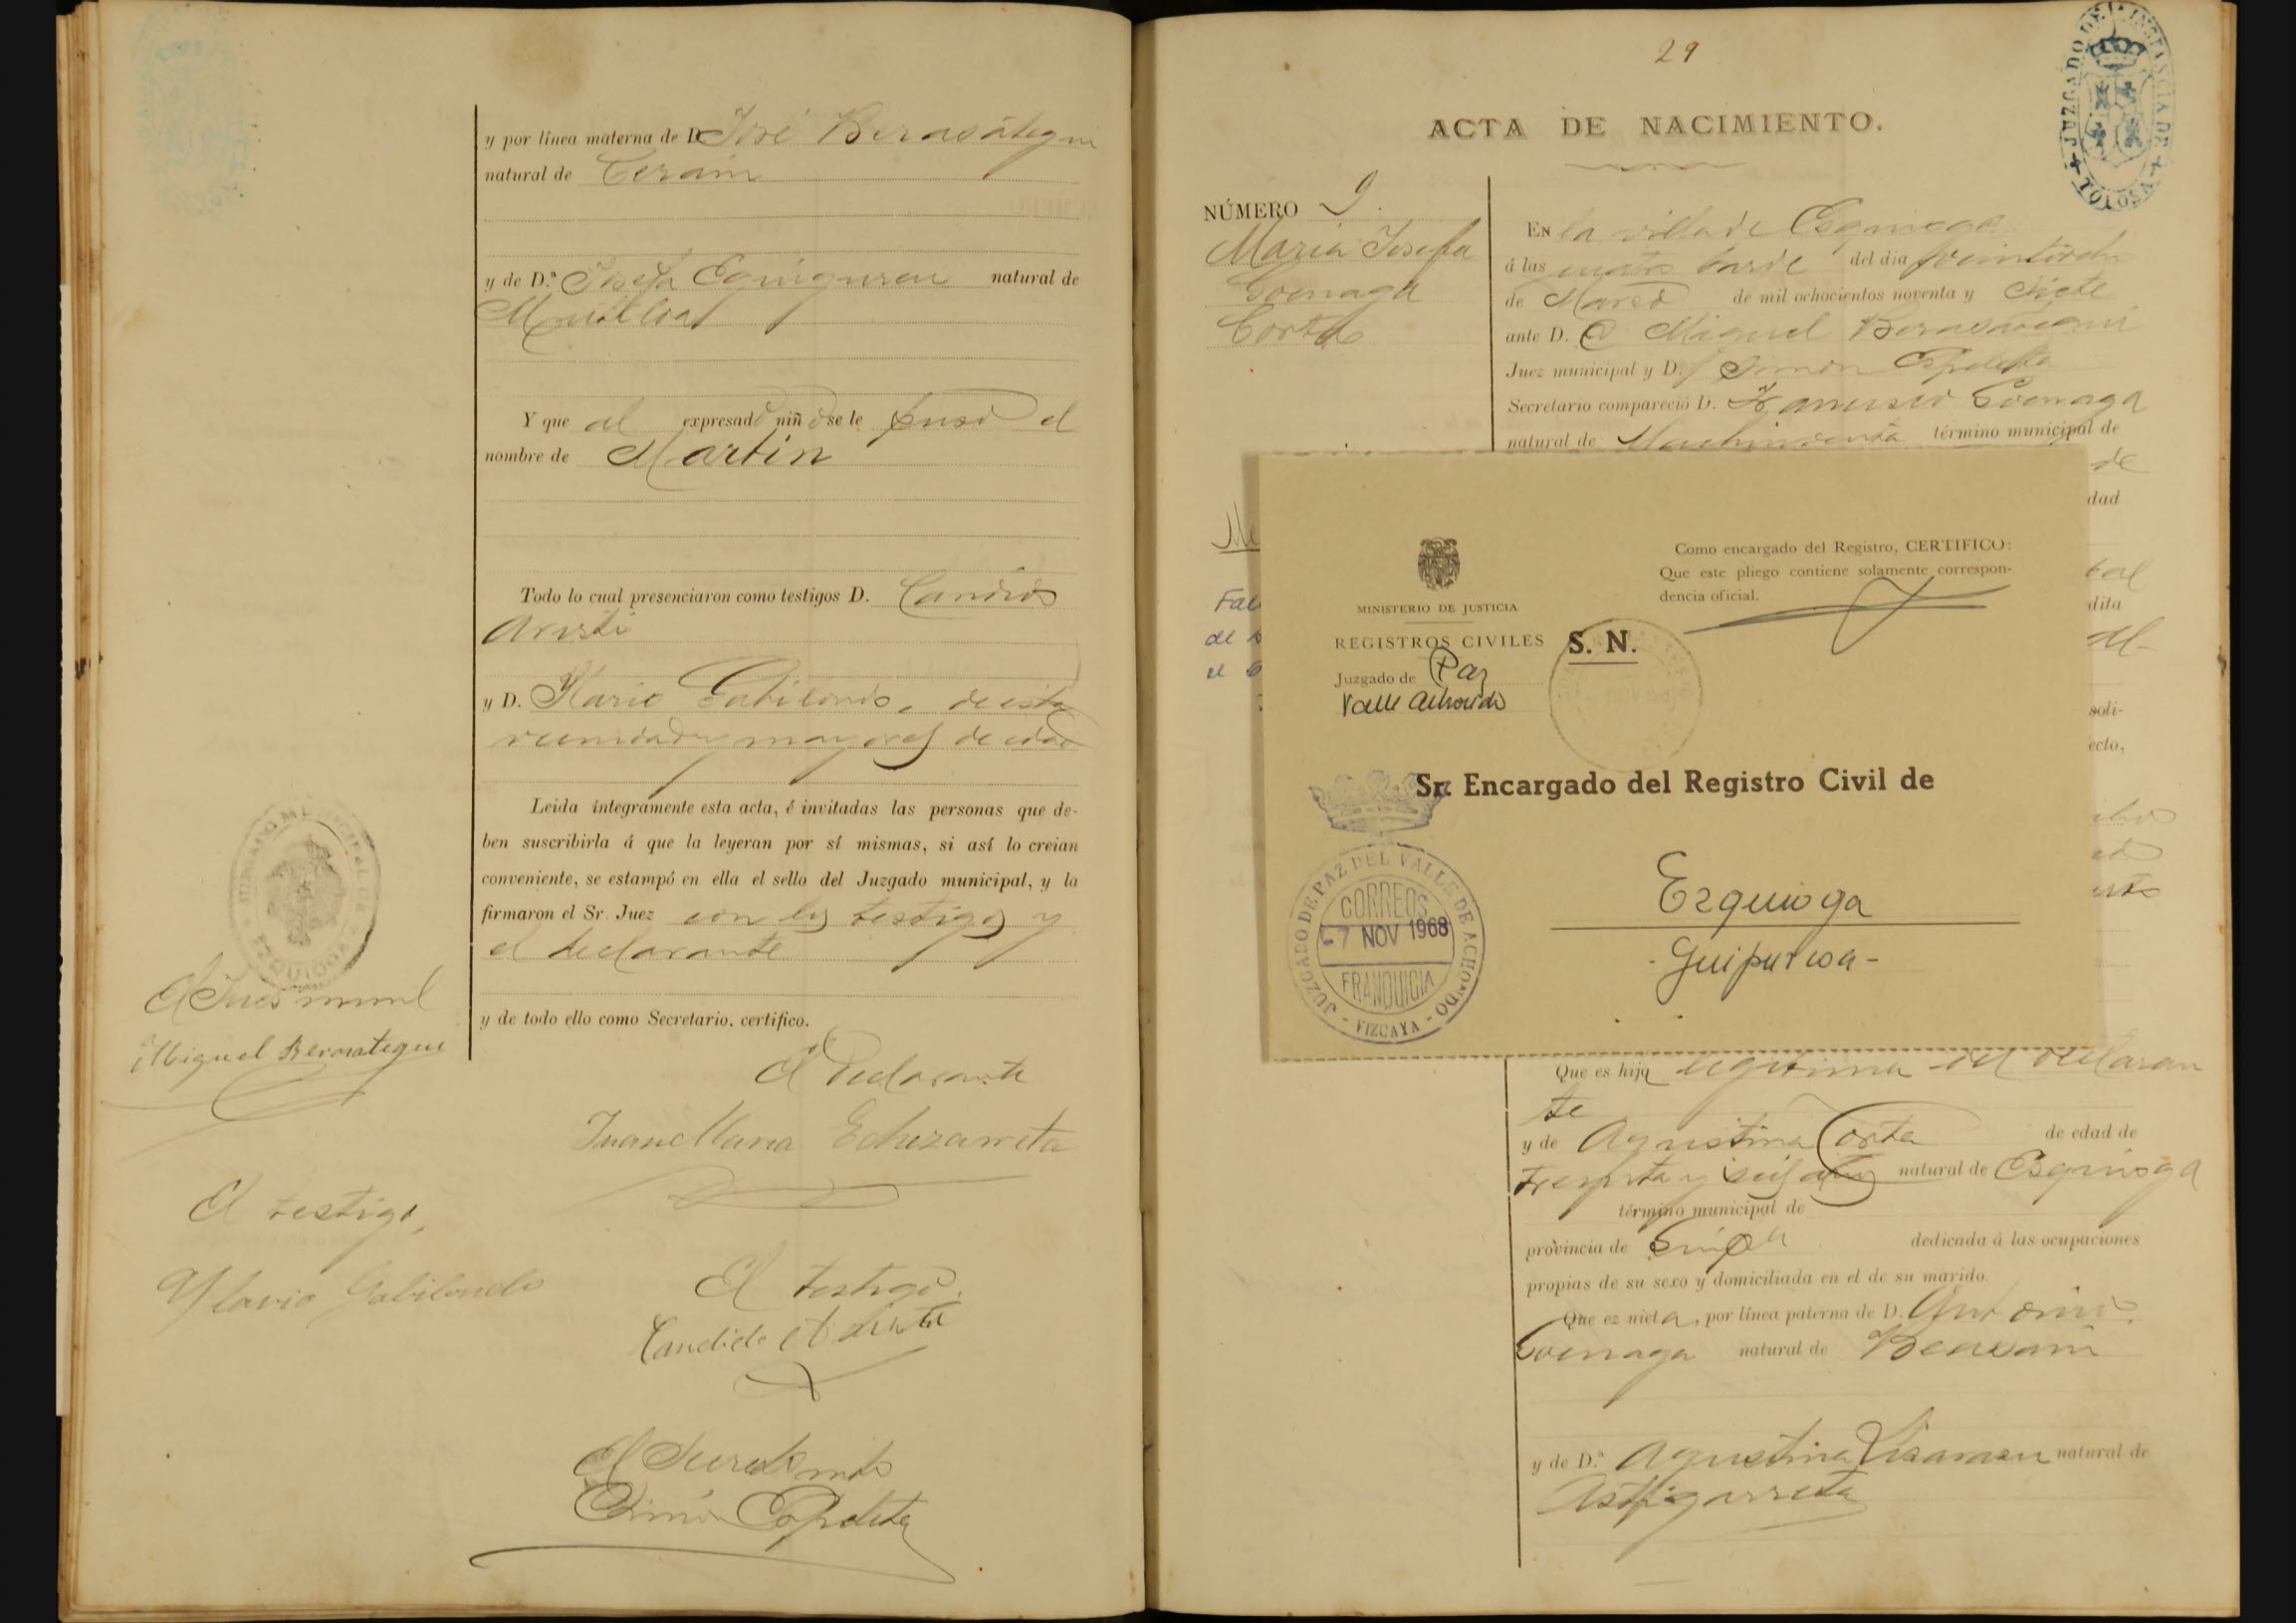 y por línea materna de D. José Berasátegui
natural de Cerain
y de D.ª Josefa Eguiguren natural de
Mutiloa
Y que al expresado niño se le puso el
nombre de Martin
Todo lo cual presenciaron como testigos D. Candido
Aristi
y D. Ylario Gabilondo, de esta
vecindad y mayores de edad
Leida íntegramente esta acta, é invitadas las personas que de-
ben suscribirla á que la leyeran por sí mismas, si así lo creian
conveniente, se estampó en ella el sello del Juzgado municipal, y la
firmaron el Sr. Juez con los testigos y
el declarante
y de todo ello como Secretario, certifico.
JUZGADO MUNICIPAL DE EZQUIOGA
El Juez munl
Miguel Berasategui
El Declarante
Juan Maria Echezarreta
El testigo,
Ylario Gabilondo
El testigo.
Candido Aristi
El Secretario
Simón Espeleta
29
JUZGADO DE 1.ª INSTANCIA DE TOLOSA
ACTA DE NACIMIENTO.
NÚMERO 9.
Maria Josefa
Goenaga
Corta
En la villa de Esquioga
á las cuatro tarde del dia
de Marzo de mil ochocientos noventa y siete
ante D. Miguel Berasategui
Juez municipal y D. Simón Espeleta
Secretario compareció D. Francisco Goenaga
natural de Machinventa término municipal de
de
dad
dita
del
soli-
ecto,
MINISTERIO DE JUSTICIA
REGISTROS CIVILES
Juzgado de Paz
Valle Achondo
S. N.
Como encargado del Registro, CERTIFICO:
Que este pliego contiene solamente correspon-
dencia oficial.
Sr. Encargado del Registro Civil de
Ezquioga
- Guipuzcoa -
JUZGADO DE PAZ DEL VALLE DE ACHONDO - VIZCAYA -
CORREOS
-7 NOV 1968
FRANQUICIA
Que es hija legitima del declaran
te
y de Agustina Corta de edad de
treinta y seis años natural de Esquioga
término municipal de
provincia de Guipa dedicada á las ocupaciones
propias de su sexo y domiciliada en el de su marido.
Que es nieta, por línea paterna de D. Antonio
Goenaga natural de Beasain
y de D.ª Agustina natural de
Astigarreta